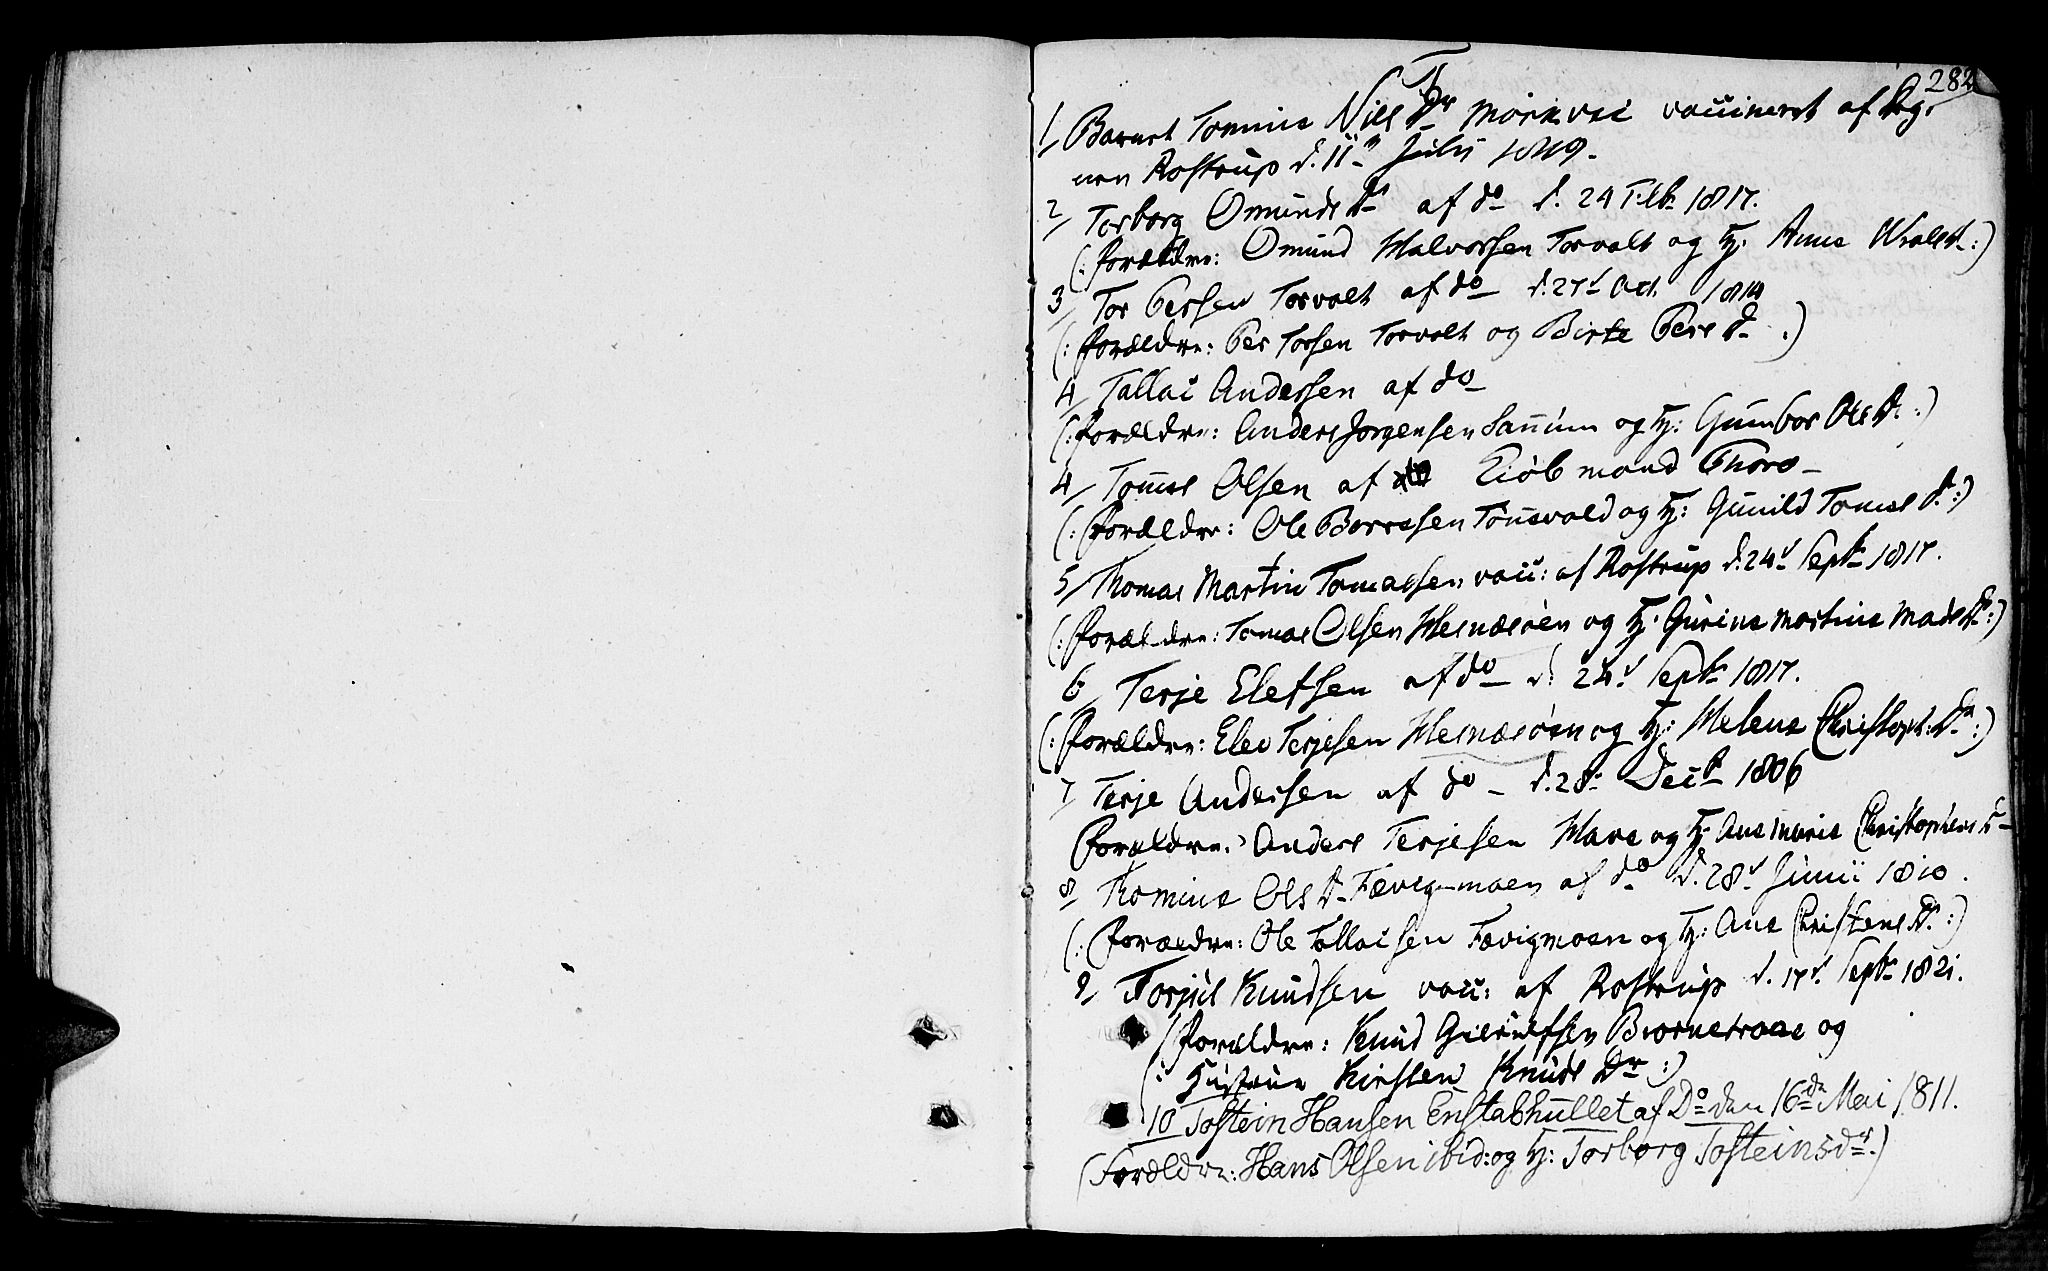 282
T
1/ Barnet Tomine Niels Dr Mørkvei vaccineret af Dog-
nen Rostrup d. 11 Julii 1819.
2/ Torborg Omunds Dr af do d. 24 Feb 1817.
(: Forældre: Omund Halvorsen Torvolt og H: Anne :)
3/ Tor Persen Torvolt af do d. 27d Oct 1814
(: Forældre: Per Torsen Torvolt og Birte Pers D :)
4/ Tallai Andersen af do
(: Forældre: Anders Jørgensen og H: Gunbor Ols D :)
4/ Tomes Olsen af Eiólmond Thoro
(: Forældre: Ole Børresen Tønsvold og H: Gunild Tomes D :)
5/ Thomas Martin Tomassen vacc: af Rostrup d. 24d Septb 1817.
(: Forældre: Tomas Olsen Hesnæsøen og H: Gurine Martine Mads D :)
6/ Terje Elefsen af do d. 24d Septb 1817.
(: Forældre: Elev Terjesen Hesnæsøen og H: Helene Christoph: Dr :)
7/ Terje Andersen af do d. 28 Decb 1806
(Forældre: Anders Terjesen Have og H: Ane Marie Christophers D
8/ Tomine Ols D Fævigmoen af do d. 28d Junii 1810.
(: Forældre: Ole Tallaisen Fævigmoen og H: Ane Christens D :)
9/ Torjul Knudsen vacc: af Rostrup d. 17d Septb 1821.
(Forældre: Knud Gierulfsen Biornetraae og
: Hustrue Kirsten Knuds Dr :)
10 Tostein Hansen Enstabhullet af Do den 16de Mai 1811.
(Forældre: Hans Olsen ibid: og H: Torborg Tosteinsdr.)